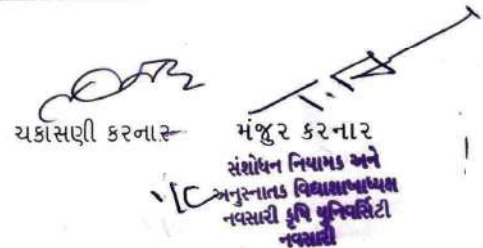 ચકાસણી કરનાર
મંજુર કરનાર
સંશોધન નિયામક અને
અનુસ્નાતક વિદ્યાશાખાધ્યક્ષ
નવસારી કૃષિ યુનિવર્સિટી
નવસારી